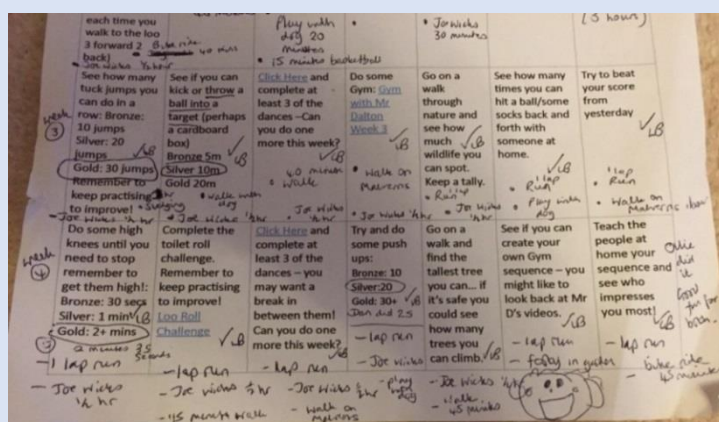 each time you
walk to the loo
3 forward 2
back)
Bike ride
40 mins
Joe Wicks ½ hour
Play with
dog 20
minutes
• 15 minute basketball
• Joe Wicks
30 minutes
(3 hours)
week
3
See how many
tuck jumps you
can do in a
row: Bronze:
10 jumps
Silver: 20
jumps
Gold: 30 jumps
Remember to
keep practising
to improve!
LB
• Joe Wicks ½ hr
See if you can
kick or throw a
ball into a
target (perhaps
a cardboard
box)
Bronze 5m
Silver 10m
Gold 20m
LB
• walk with
dog
• Joe Wicks ½ hr
Click Here and
complete at
least 3 of the
dances –Can
you do one
more this week?
LB
40 minute
walk
• Joe Wicks
½ hr
Do some
Gym: Gym
with Mr
Dalton
Week 3
LB
• Walk on
Malverns
• Joe Wicks ½ hr
Go on a
walk
through
nature and
see how
much
wildlife you
can spot.
Keep a tally.
LB
• Run 1 lap
• Joe Wicks
½ hr
See how many
times you can
hit a ball/some
socks back and
forth with
someone at
home.
LB
• 1 lap
Run
• Play with
dog
Try to beat
your score
from
yesterday
LB
• 1 lap
Run
• Walk on
Malverns 1 hour
week
4
Do some high
knees until you
need to stop
remember to
get them high!:
Bronze: 30 secs
Silver: 1 min
Gold: 2+ mins
LB
2 minutes 35
seconds
– 1 lap run
– Joe Wicks
½ hr
Complete the
toilet roll
challenge.
Remember to
keep practising
to improve!
Loo Roll
Challenge
LB
– lap run
– Joe Wicks ½ hr
– 45 minute walk
Click Here and
complete at
least 3 of the
dances – you
may want a
break in
between them!
Can you do one
more this week?
LB
– lap run
– Joe Wicks ½ hr
– Walk on
Malverns
Try and do
some push
ups:
Bronze: 10
Silver:20
Gold: 30+
LB
did 25
– lap run
– Joe Wicks
½ hr
– Play with
dog
Go on a
walk and
find the
tallest tree
you can... if
it's safe you
could see
how many
trees you
can climb.
LB
– Joe Wicks ½ hr
– Walk
45 minutes
See if you can
create your
own Gym
sequence – you
might like to
look back at Mr
D's videos.
LB
– lap run
– footy in garden
Teach the
people at
home your
sequence and
see who
impresses
you most!
LB
– lap run
– bike ride
45 minutes
Ollie
did it